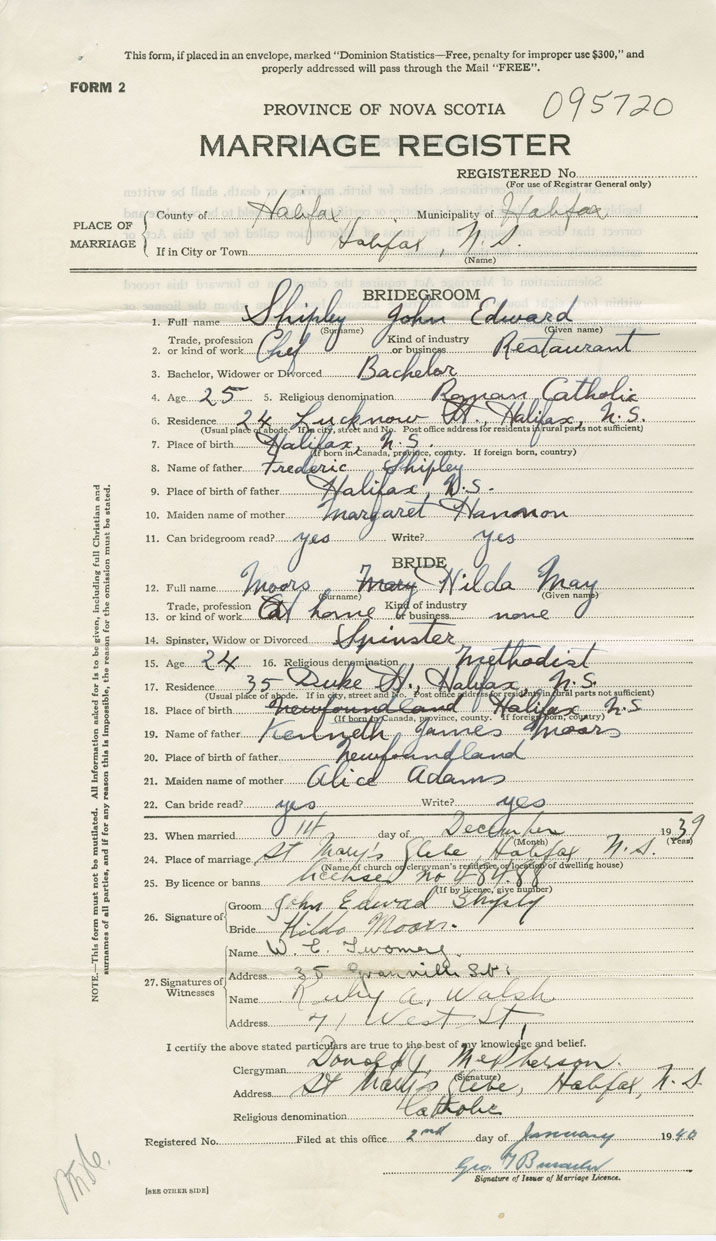 This form, if placed in an envelope, marked "Dominion Statistics—Free, penalty for improper use $300," and
properly addressed will pass through the Mail "FREE".
FORM 2
PROVINCE OF NOVA SCOTIA 095720
MARRIAGE REGISTER
REGISTERED No.
(For use of Registrar General only)
PLACE OF MARRIAGE
County of Halifax Municipality of Halifax
If in City or Town Halifax, N.S.
(Name)
BRIDEGROOM
1. Full name Shipley John Edward
(Surname) (Given name)
2. Trade, profession or kind of work Chef Kind of industry or business Restaurant
3. Bachelor, Widower or Divorced Bachelor
4. Age 25 5. Religious denomination Roman Catholic
6. Residence 24 Lucknow St., Halifax, N.S.
(Usual place of abode. If in city, street and No. Post office address for residents in rural parts not sufficient)
7. Place of birth Halifax, N.S.
(If born in Canada, province, county. If foreign born, country)
8. Name of father Frederic Shipley
9. Place of birth of father Halifax, N.S.
10. Maiden name of mother Margaret Hannon
11. Can bridegroom read? yes Write? yes
BRIDE
12. Full name Moors Mary Hilda May
(Surname) (Given name)
13. Trade, profession or kind of work At home Kind of industry or business none
14. Spinster, Widow or Divorced Spinster
15. Age 24 16. Religious denomination Methodist
17. Residence 35 Duke St., Halifax, N.S.
(Usual place of abode. If in city, street and No. Post office address for residents in rural parts not sufficient)
18. Place of birth Newfoundland Halifax N.S
(If born in Canada, province, county. If foreign born, country)
19. Name of father Kenneth James Moors
20. Place of birth of father Newfoundland
21. Maiden name of mother Alice Adams
22. Can bride read? yes Write? yes
23. When married 14 day of December 1939
(Month) (Year)
24. Place of marriage St Mary's Glebe, Halifax, N.S.
(Name of church or clergyman's residence or location of dwelling house)
25. By licence or banns License no 48488
(If by licence, give number)
26. Signature of
Groom John Edward Shiply
Bride Hilda Moors.
27. Signatures of Witnesses
Name W. E. Twomey.
Address 35 Granville St.
Name Ruby A. Walsh
Address 71 West St.
I certify the above stated particulars are true to the best of my knowledge and belief.
Clergyman Donald J. McPherson.
(Signature)
Address St Mary's Glebe, Halifax, N.S.
Religious denomination Catholic
Registered No. Filed at this office 2nd day of January 1940
Geo
Signature of Issuer of Marriage Licence.
[SEE OTHER SIDE]
NOTE.—This form must not be mutilated. All information asked for is to be given, including full Christian and
surnames of all parties, and if for any reason this is impossible, the reason for the omission must be stated.